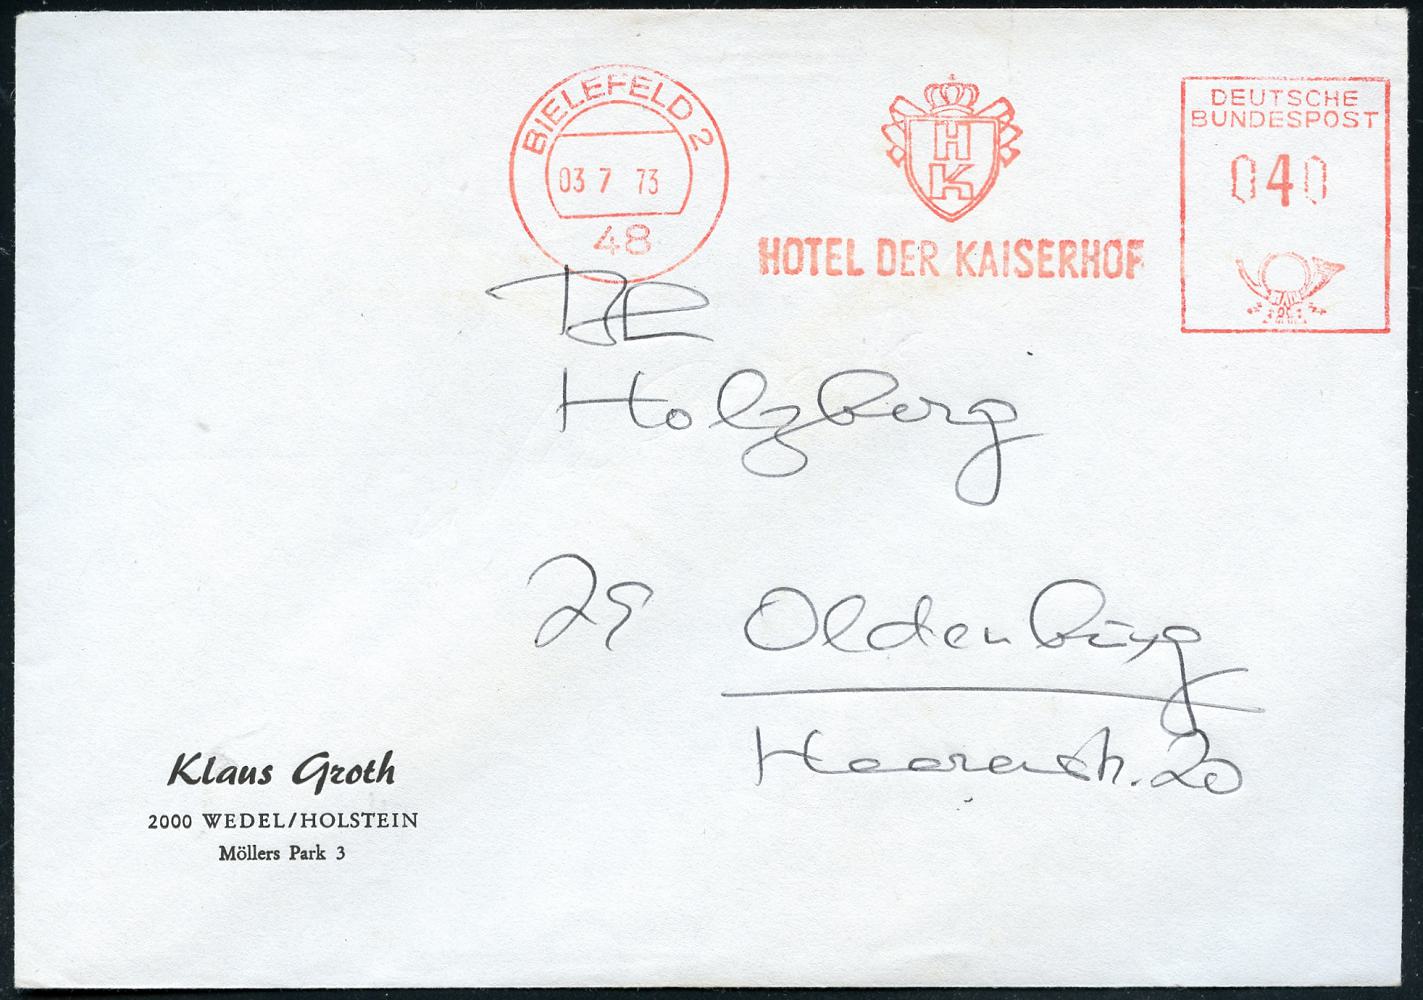 BIELEFELD 2
03 7 73
48
H
K
HOTEL DER KAISERHOF
DEUTSCHE
BUNDESPOST
040
Holzberg
29 Oldenburg
20
Klaus Groth
2000 WEDEL/HOLSTEIN
Möllers Park 3